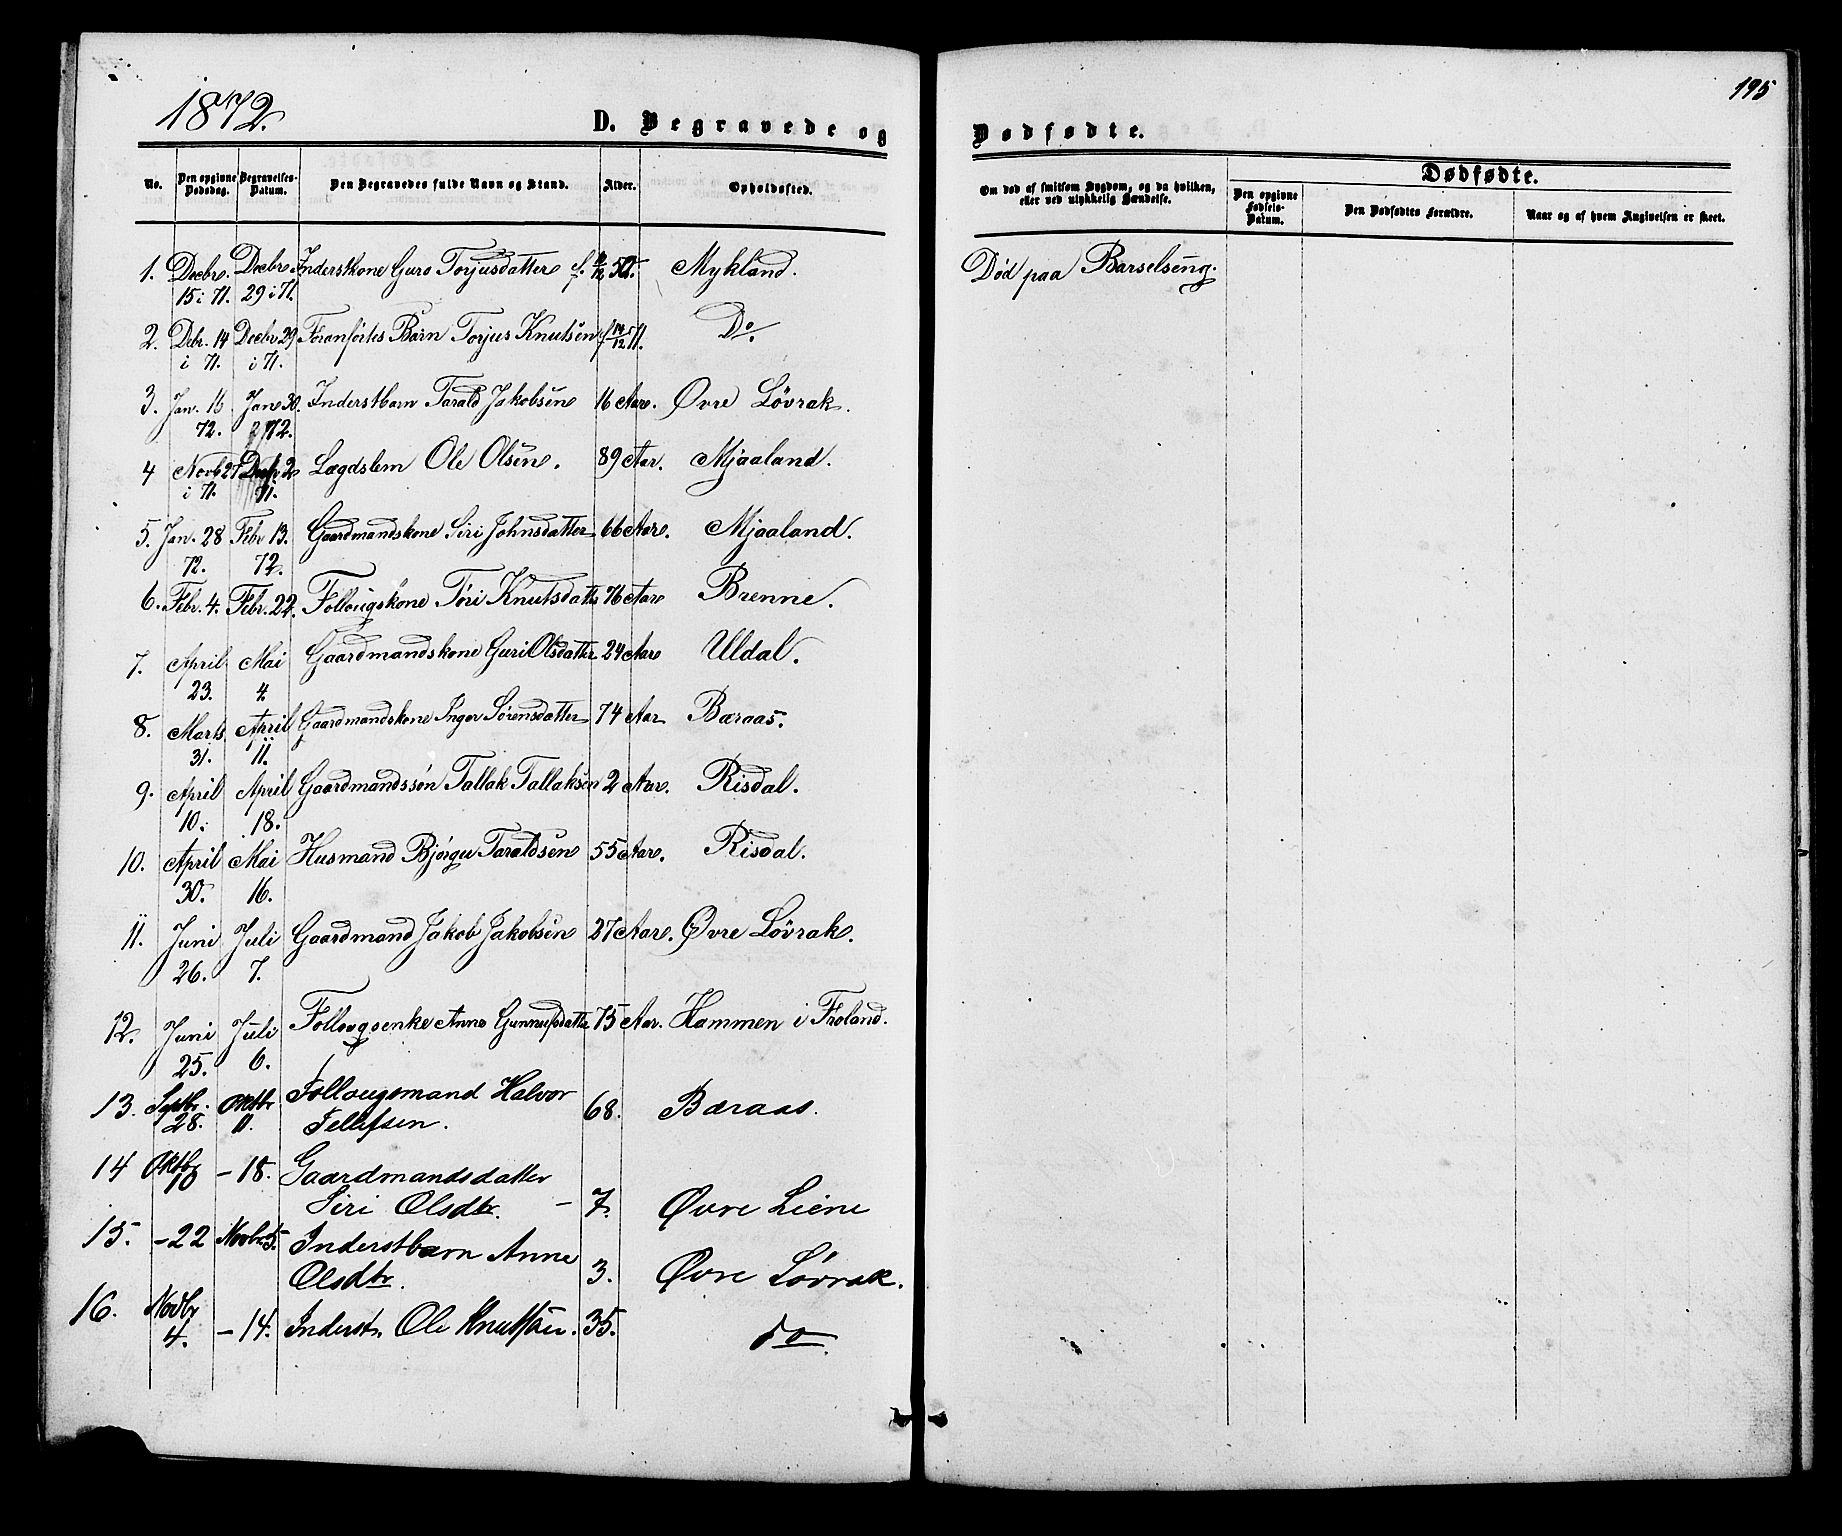 1872.
D. Begravede og
No.
Den opgivne Dødsdag.
Begravelses-Datum.
Den Begravedes fulde Navn og Stand.
Alder.
Opholdssted.
1. Decbr. 15 i 71. Decbr. 29 i 71. Inderstkone Guro Torjusdatter f. 52. Mykland.
2. Debr. 14 i 71. Decbr 29 i 71. Foranførtes Barn Torjus Knutsen f 14/12 71. Do.
3. Jan. 16 72. Jan. 30. 72. Inderstbarn Tarald Jakobsen 16 Aar. Øvre Løvrak.
4 Novb 27 i 71. Decbr 2 71. Lægdslem Ole Olsen. 89 Aar. Mjaaland.
5. Jan. 28 72. Febr 13. 72. Gaardmandskone Siri Johnsdatter 66 Aar. Mjaaland.
6. Febr. 4. Febr. 22. Follougskone Tøri Knutsdatter 76 Aar Brenne.
7. April 23. Mai 4. Gaardmandskone Guri Olsdatter 24 Aar Uldal.
8. Marts 31. April 11. Gaardmandskone Inger Sørensdatter 74 Aar Bæraas.
9. April 10. April 18. Gaardmandssøn Tallak Tallaksen 2 Aar. Risdal.
10. April 30. Mai 16. Husmand Bjørgu Taraldsen 55 Aar. Risdal.
11. Juni 26. Juli 7. Gaardmand Jakob Jakobsen 27 Aar. Øvre Løvrak.
12. Juni 25. Juli 6. Follougsenke Anne Gunnufsdatter 75 Aar. Hammen i Froland.
13. Septbr. 28. Oktbr 11. Follougsmand Halvor Tellefsen. 68. Bæraas.
14 Oktbr 10 – 18. Gaardmandsdatter Siri Olsdtr. – 7. Øvre Liene
15. – 22 Novbr 5. Inderstbarn Anne Olsdtr. 3. Øvre Løvrak.
16. Novbr 4. – 14. Inderst Ole Knutsen. 35. do
195
Dødfødte.
Om død af smitsom Sygdom, og da hvilken, eller ved ulykkelig Hændelse.
Dødfødte.
Den opgivne Fødsels-Datum.
Den Dødfødtes Forældre.
Naar og af hvem Angivelsen er skeet.
Død paa Barselseng.